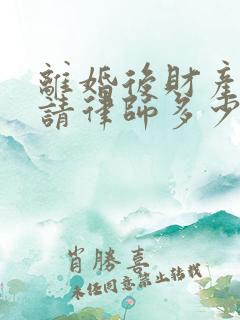 離婚後財產
請律師多少
肖勝喜
未經同意禁止轉載